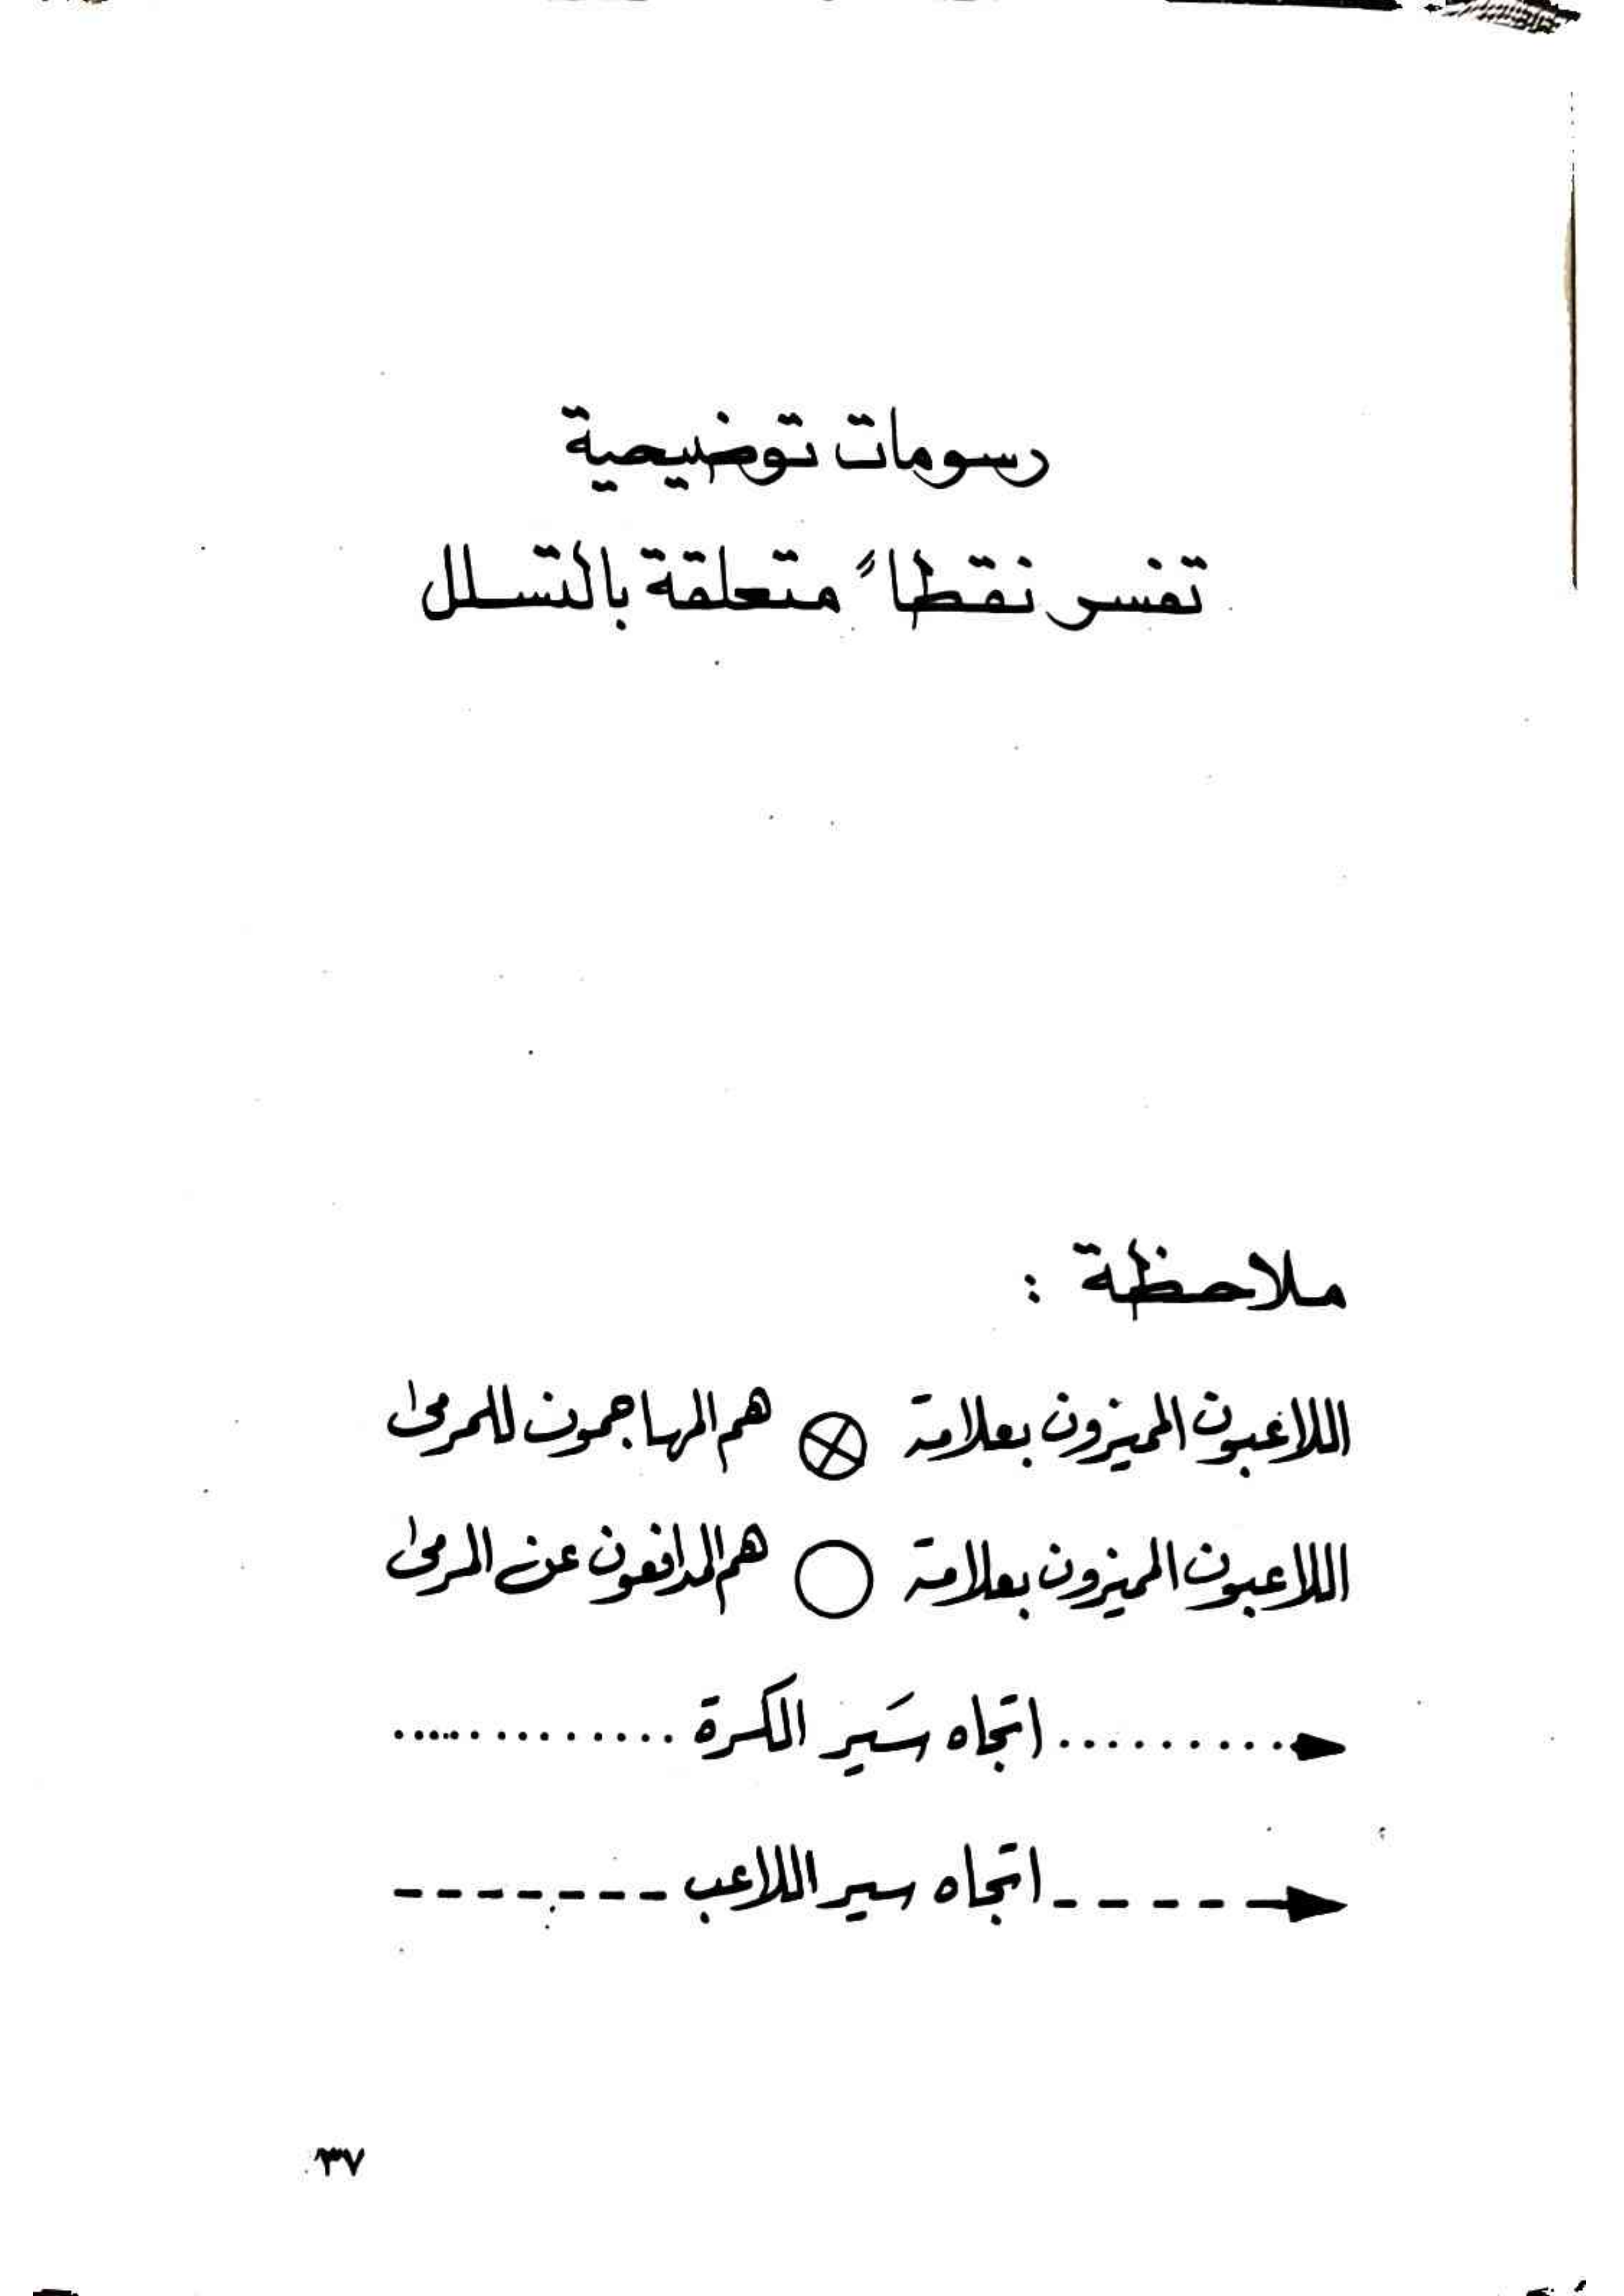 رسومات توضيحية
تفسر نقطاً متعلقة بالتسلل
ملاحظة :
اللاعبون المميزون بعلامة ⊗ هم المهاجمون للمرمى
اللاعبون المميزون بعلامة ○ هم المدافعون عن المرمى
.......... اتجاه سَير الكرة ..............
----- اتجاه سير اللاعب -------
٣٧